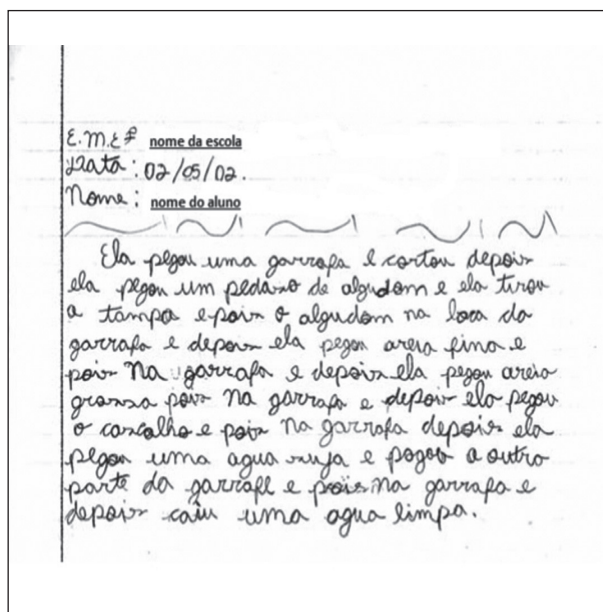 E.M.E.F nome da escola
Data: 02/05/02.
Nome: nome do aluno
Ela pegou uma garrafa e cortou depois
ela pegou um pedaso de algudom e ela tirou
a tampa e pois o algudom na boca da
garrafa e depois ela pegou areia fina e
pois na garrafa e depois ela pegou areia
grossa pois na garrafa e depois ela pegou
o cascalho e pois na garrafa depois ela
pegou uma agua suja e pogou a outro
parte da garrafe e pois na garrafa e
depois caiu uma agua limpa.